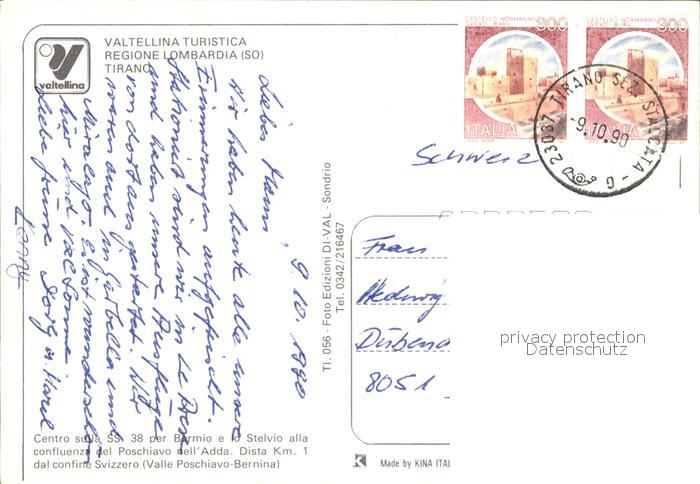 valtellina
VALTELLINA TURISTICA
REGIONE LOMBARDIA (SO)
TIRANO
CASTELLO NORMANNO
SVEVO - BARI
300
ITALIA
CASTELLO NORMANNO
SVEVO - BARI
300
ITALIA
23037 TIRANO SEZ. STACCATA - G
-9.10.90
Schweiz
9.10.1990
Wir haben heute alle unsere
Erinnerungen aufgefrischt.
sind wir in Le Prese
und haben unsere Ausflüge
von dort aus gestartet. Wir
waren auch in
Miralago. Es ist wunderschön
hier und
Liebe Grüsse
TI. 056 - Foto Edizioni DI-VAL - Sondrio
Tel. 0342/216467
Frau
Hedwig
Dübend
8051
privacy protection
Datenschutz
Centro sulla SS. 38 per Bormio e lo Stelvio alla
confluenza del Poschiavo nell'Adda. Dista Km. 1
dal confine Svizzero (Valle Poschiavo-Bernina)
K Made by KINA ITAL